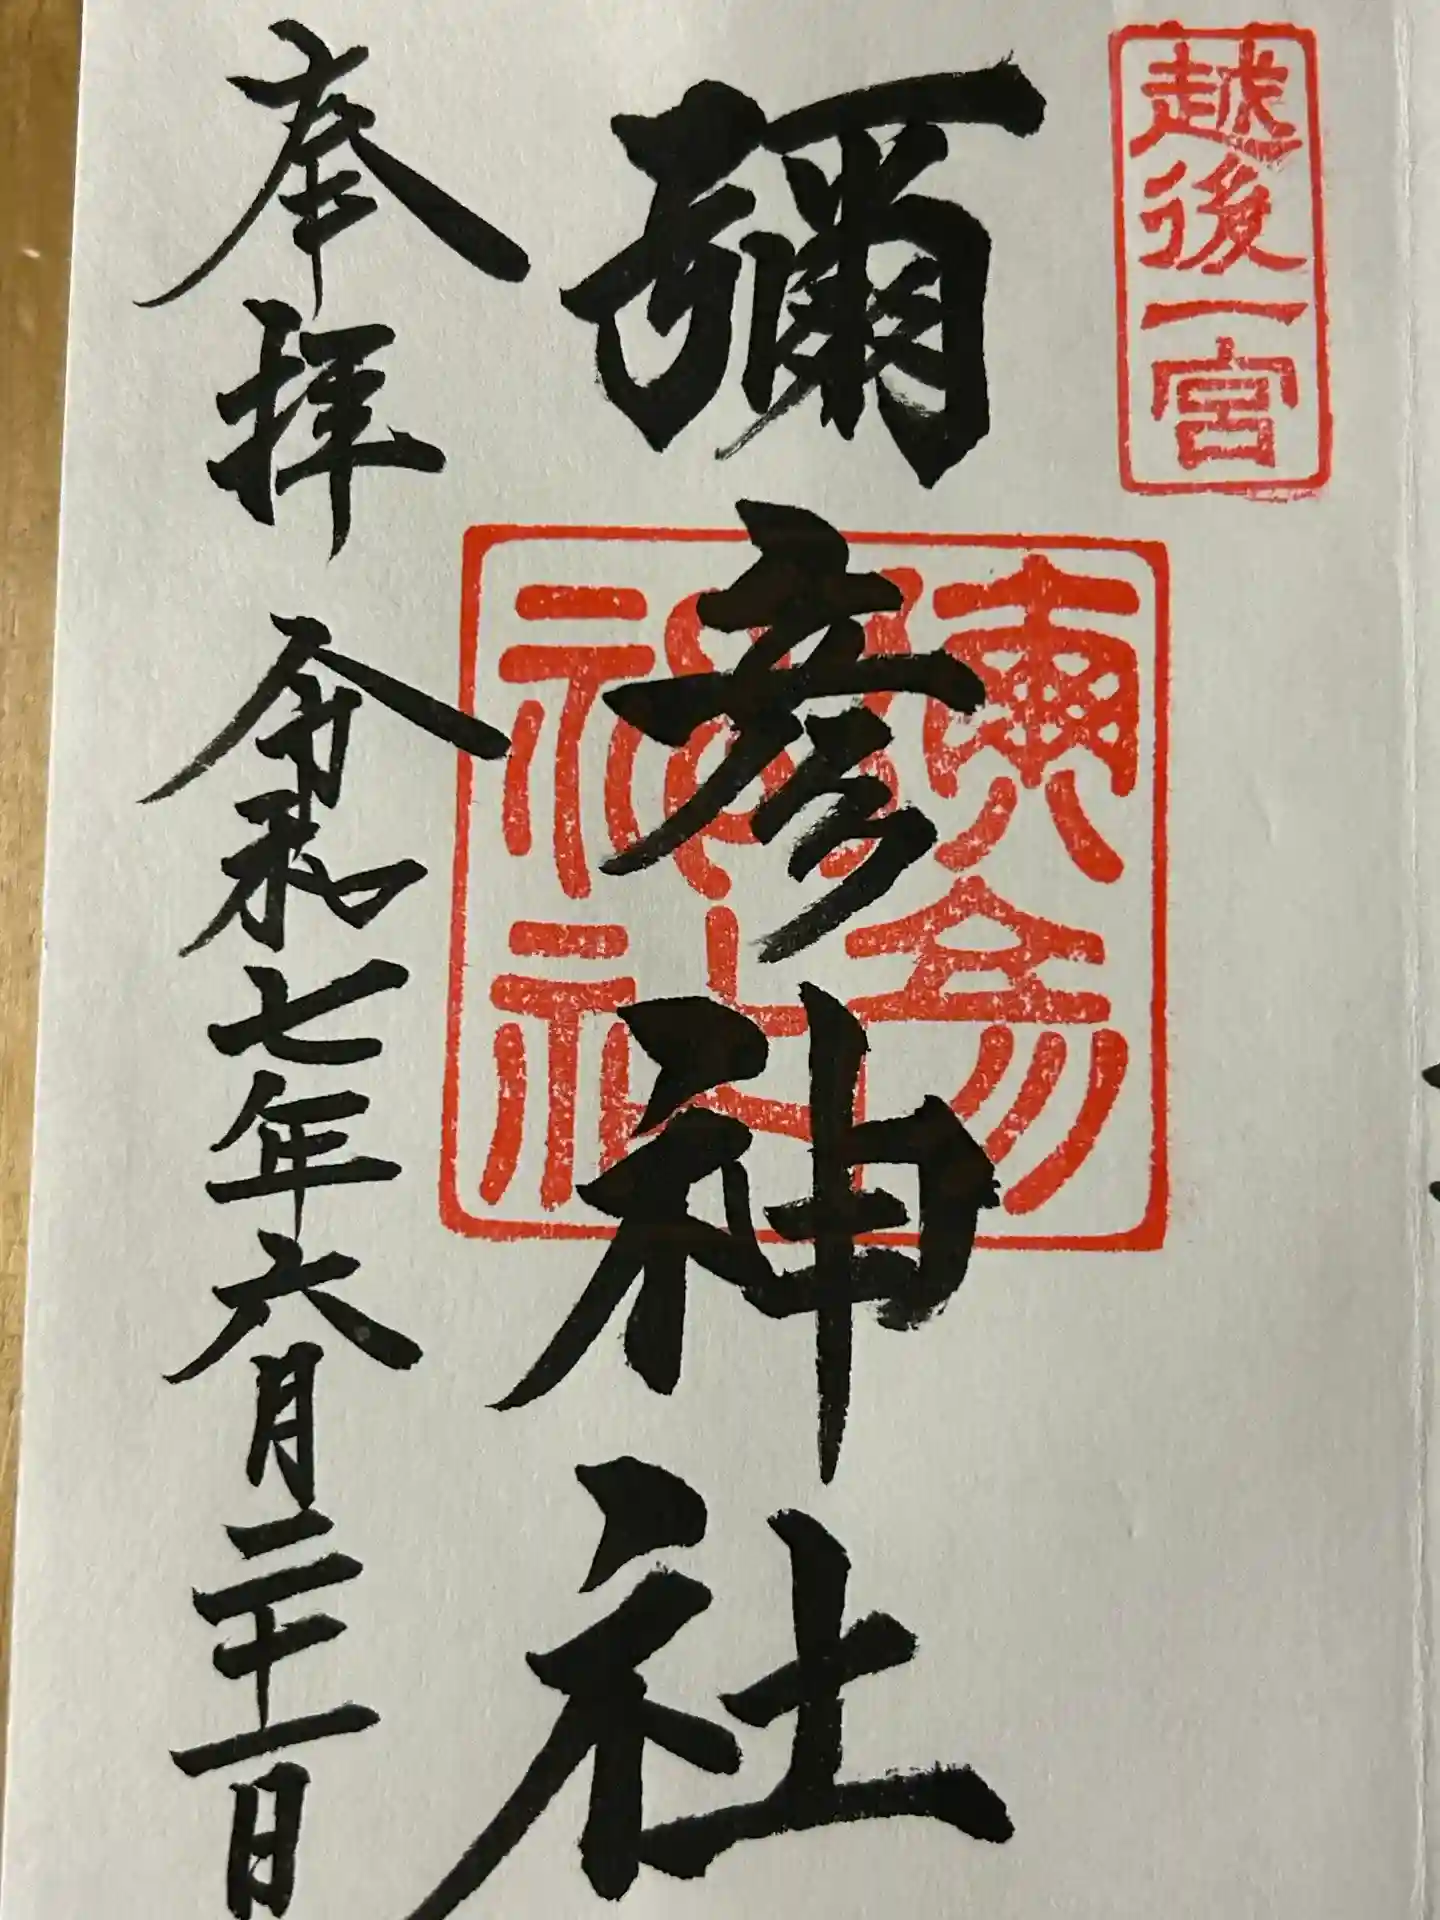 越後一宮
彌彦神社
彌彦神社
奉拝 令和七年六月二十一日